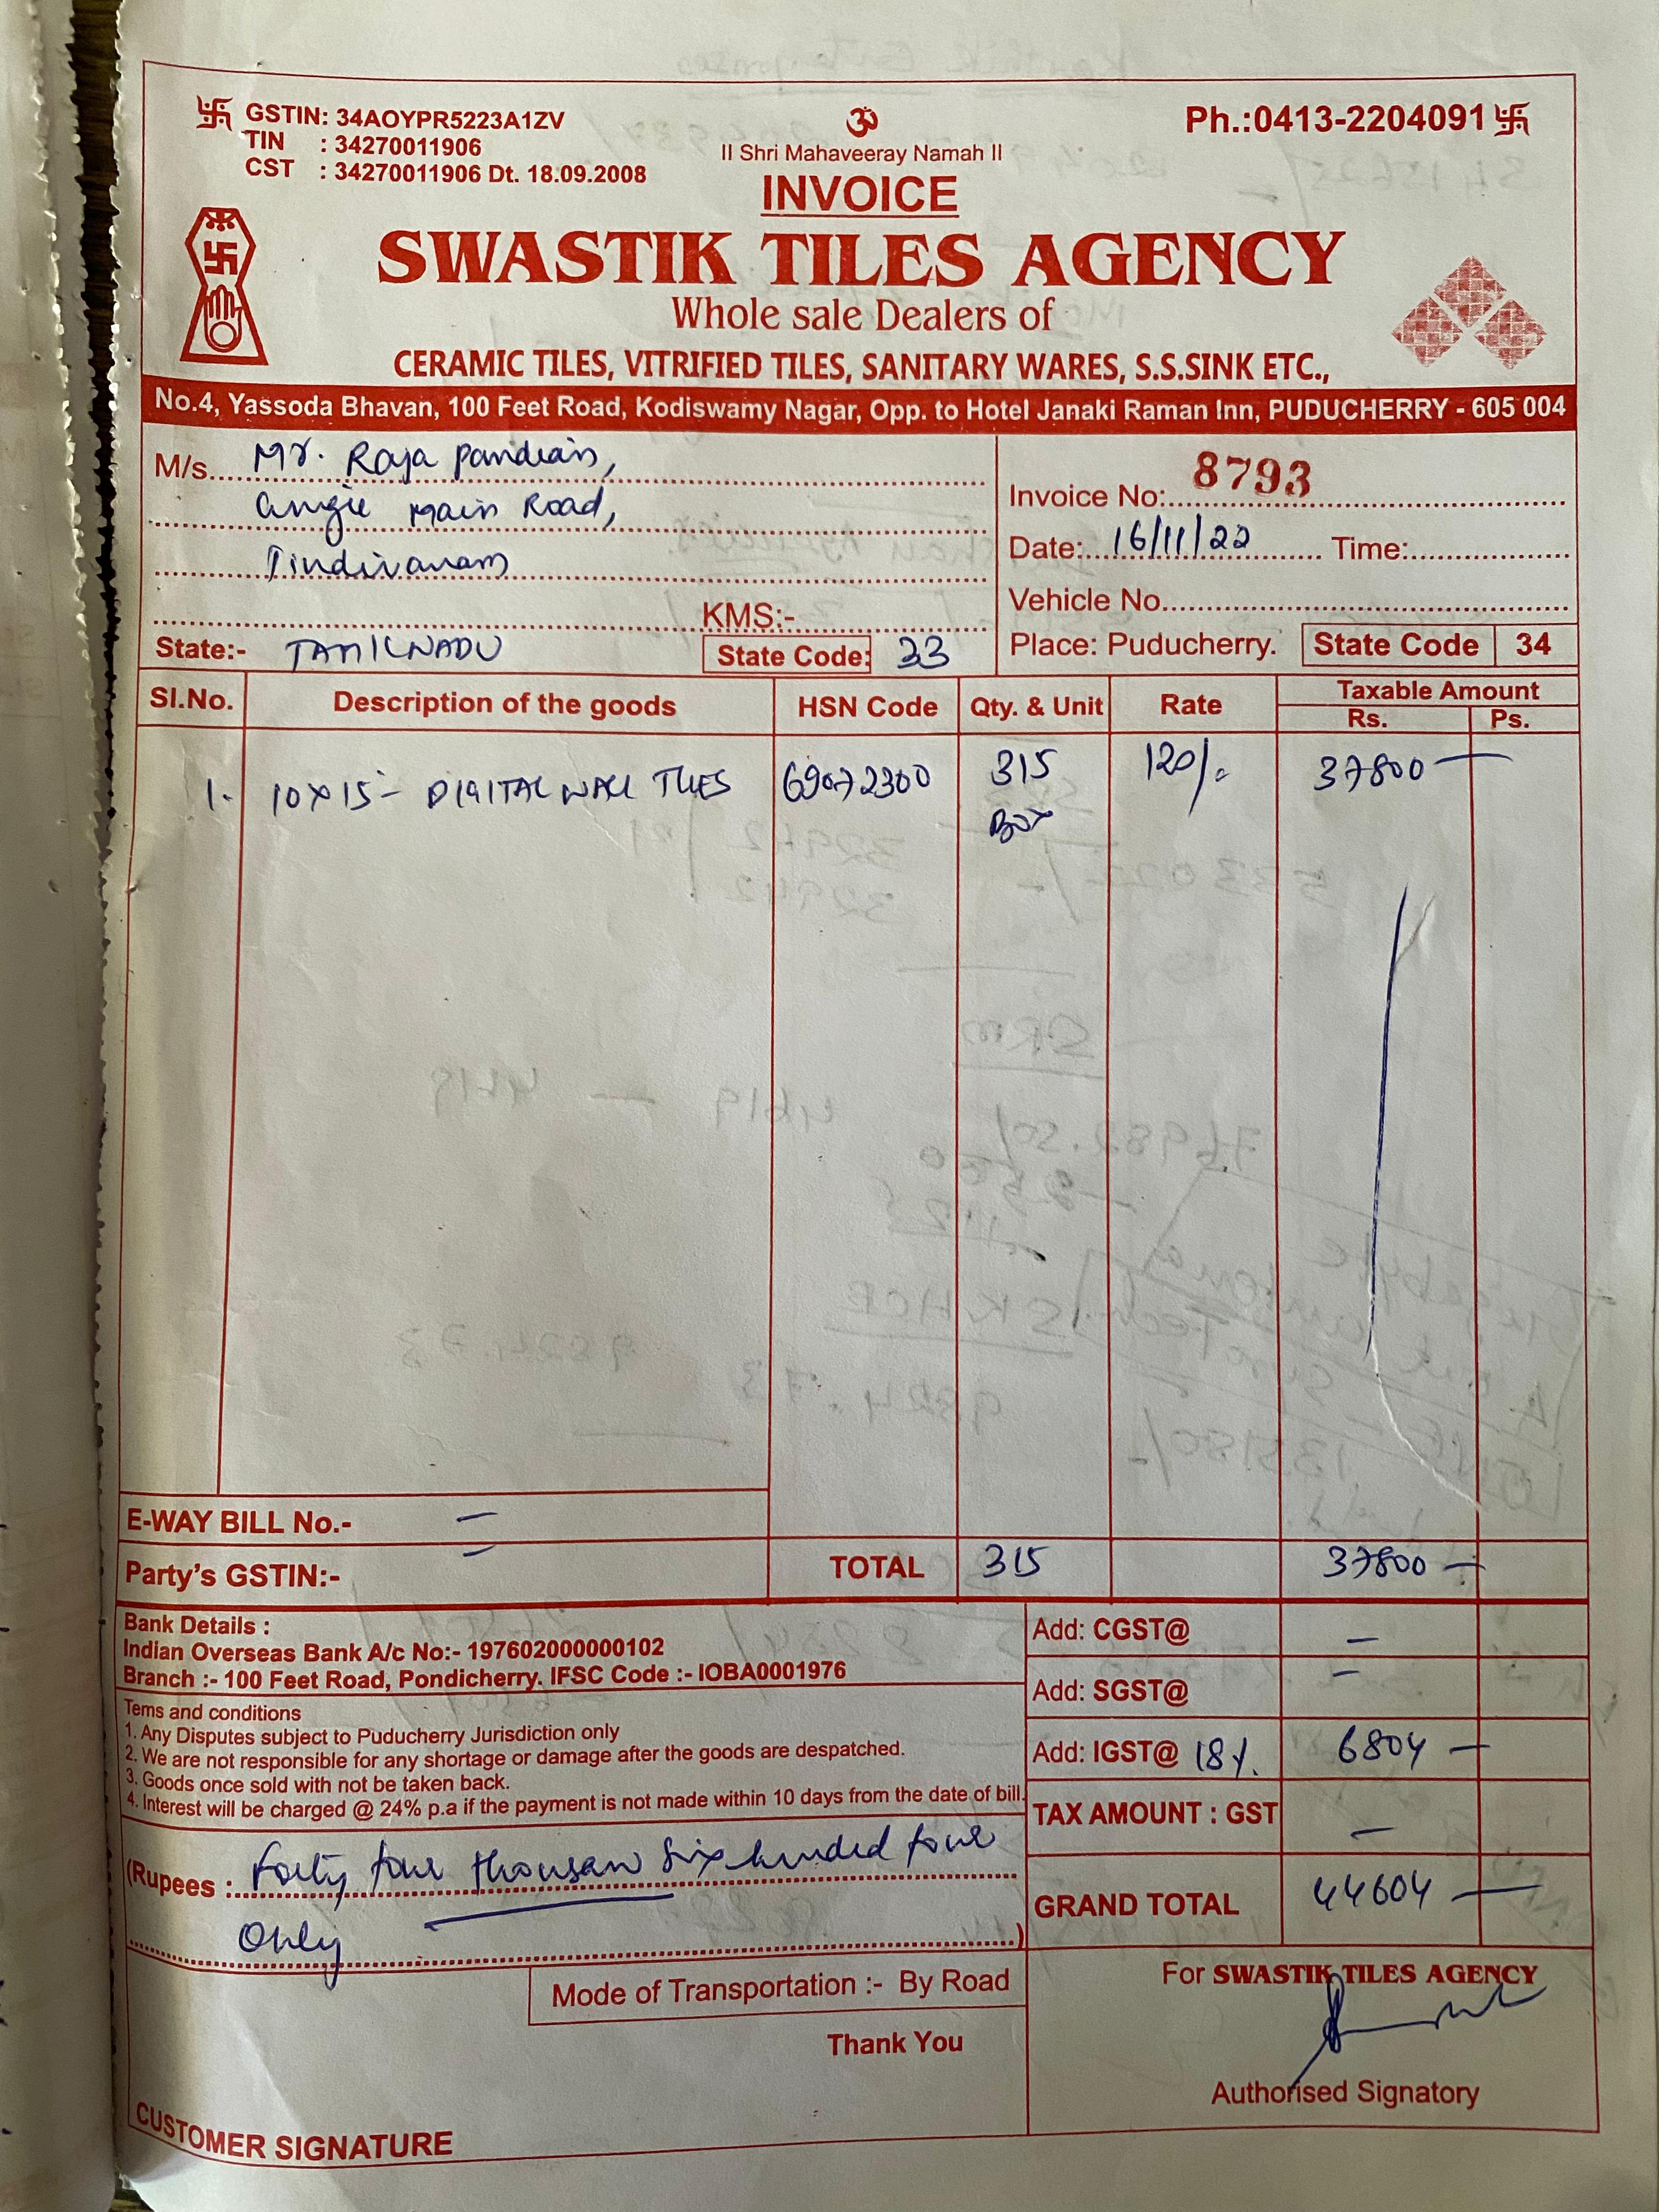 GSTIN: 34AOYPR5223A1ZV
TIN : 34270011906
CST : 34270011906 Dt. 18.09.2008
ॐ
II Shri Mahaveeray Namah II
Ph.:0413-2204091
INVOICE
SWASTIK TILES AGENCY
Whole sale Dealers of
CERAMIC TILES, VITRIFIED TILES, SANITARY WARES, S.S.SINK ETC.,
No.4, Yassoda Bhavan, 100 Feet Road, Kodiswamy Nagar, Opp. to Hotel Janaki Raman Inn, PUDUCHERRY - 605 004
M/s. Mr. Raja pandian,
Main Road,
Tindivanam
KMS:-
State:- TAMILNADU State Code: 33
Invoice No: 8793
Date: 16/11/22 Time:
Vehicle No.
Place: Puducherry. State Code 34
Sl.No. Description of the goods HSN Code Qty. & Unit Rate Taxable Amount
Rs. Ps.
1. 10x15 - DIGITAL WALL TILES 69072300 315 120/. 37800 —
Box
E-WAY BILL No.- =
Party's GSTIN:- TOTAL 315 37800 —
Bank Details :
Indian Overseas Bank A/c No:- 197602000000102
Branch :- 100 Feet Road, Pondicherry. IFSC Code :- IOBA0001976
Tems and conditions
1. Any Disputes subject to Puducherry Jurisdiction only
2. We are not responsible for any shortage or damage after the goods are despatched.
3. Goods once sold with not be taken back.
4. Interest will be charged @ 24% p.a if the payment is not made within 10 days from the date of bill.
Add: CGST@ —
Add: SGST@ =
Add: IGST@ 18%. 6804 —
TAX AMOUNT : GST —
GRAND TOTAL 44604 —
(Rupees : Forty four thousan six hunded four
Only )
Mode of Transportation :- By Road
Thank You
CUSTOMER SIGNATURE
For SWASTIK TILES AGENCY
Authorised Signatory